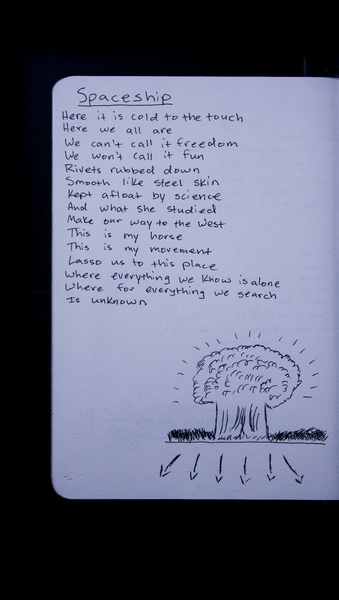 Spaceship
Here it is cold to the touch
Here we all are
We can't call it freedom
We won't call it fun
Rivets rubbed down
Smooth like steel skin
Kept afloat by science
And what she studied
Make our way to the West
This is my horse
This is my movement
Lasso us to this place
Where everything we know is alone
Where for everything we search
Is unknown